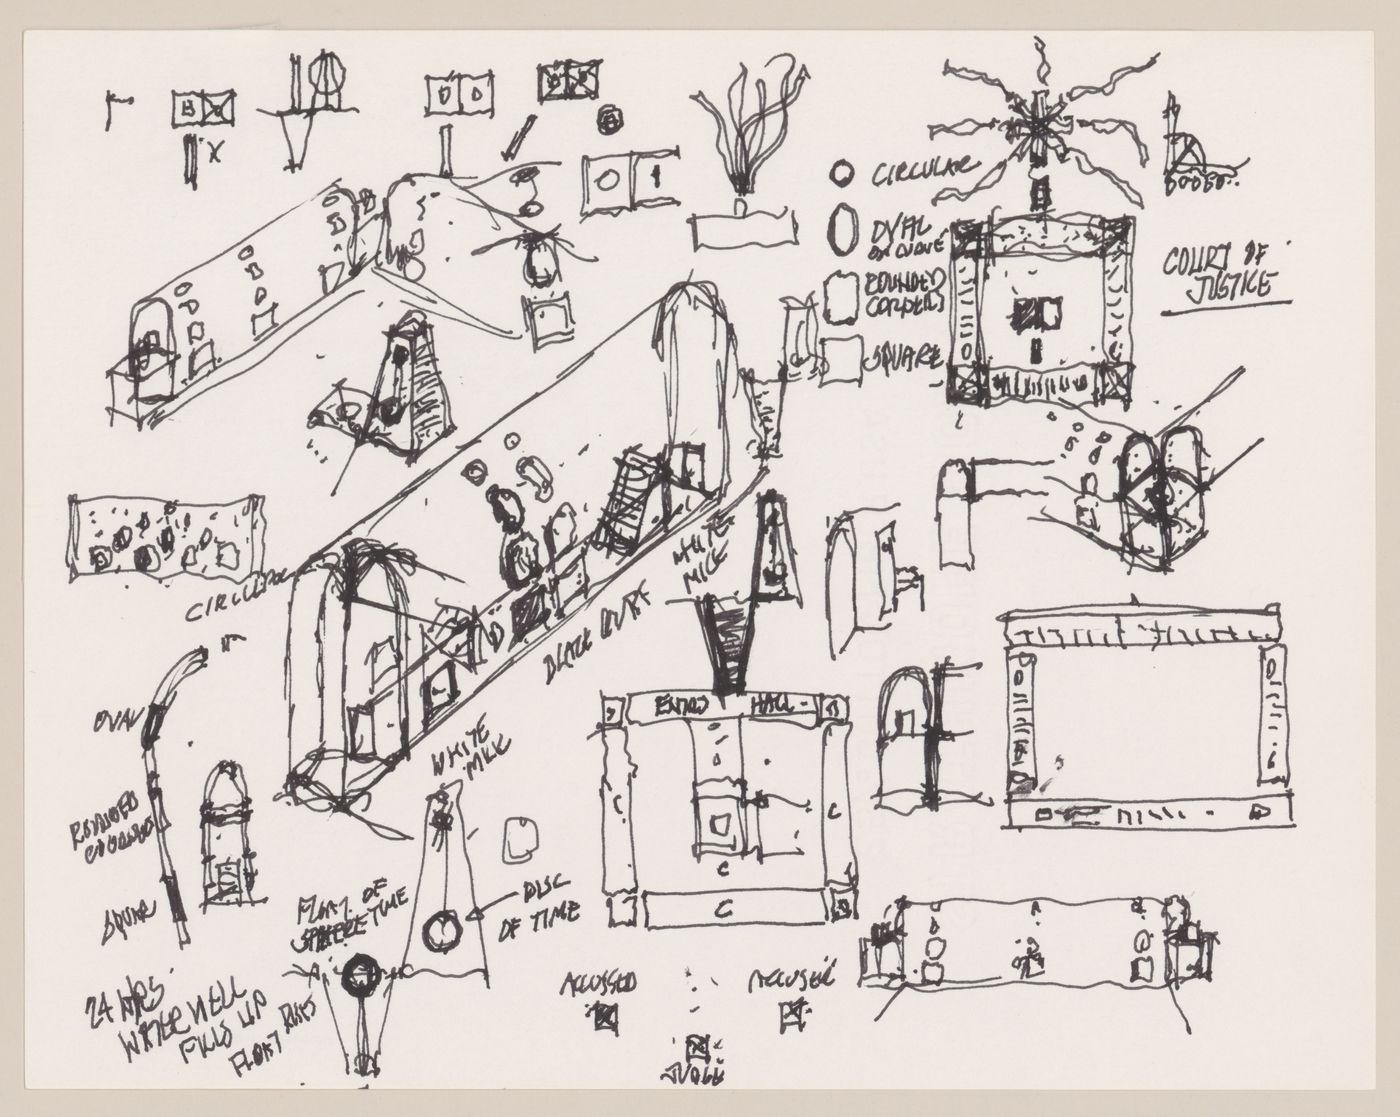 CIRCULAR
OVAL
ROUNDED
CORNERS
SQUARE
COURT OF
JUSTICE
CIRCULAR
WHITE
MILK
BLACK
OVAL
ROUNDED
SQUARE
WHITE
MILK
ENTRY HALL
C
C
C
C
FLOAT OF
SPHERE TIME
DISC
OF TIME
24 HRS
WATER WELL
FILLS UP
FLOAT RISES
ACCUSSED
ACCUSER
JUDGE